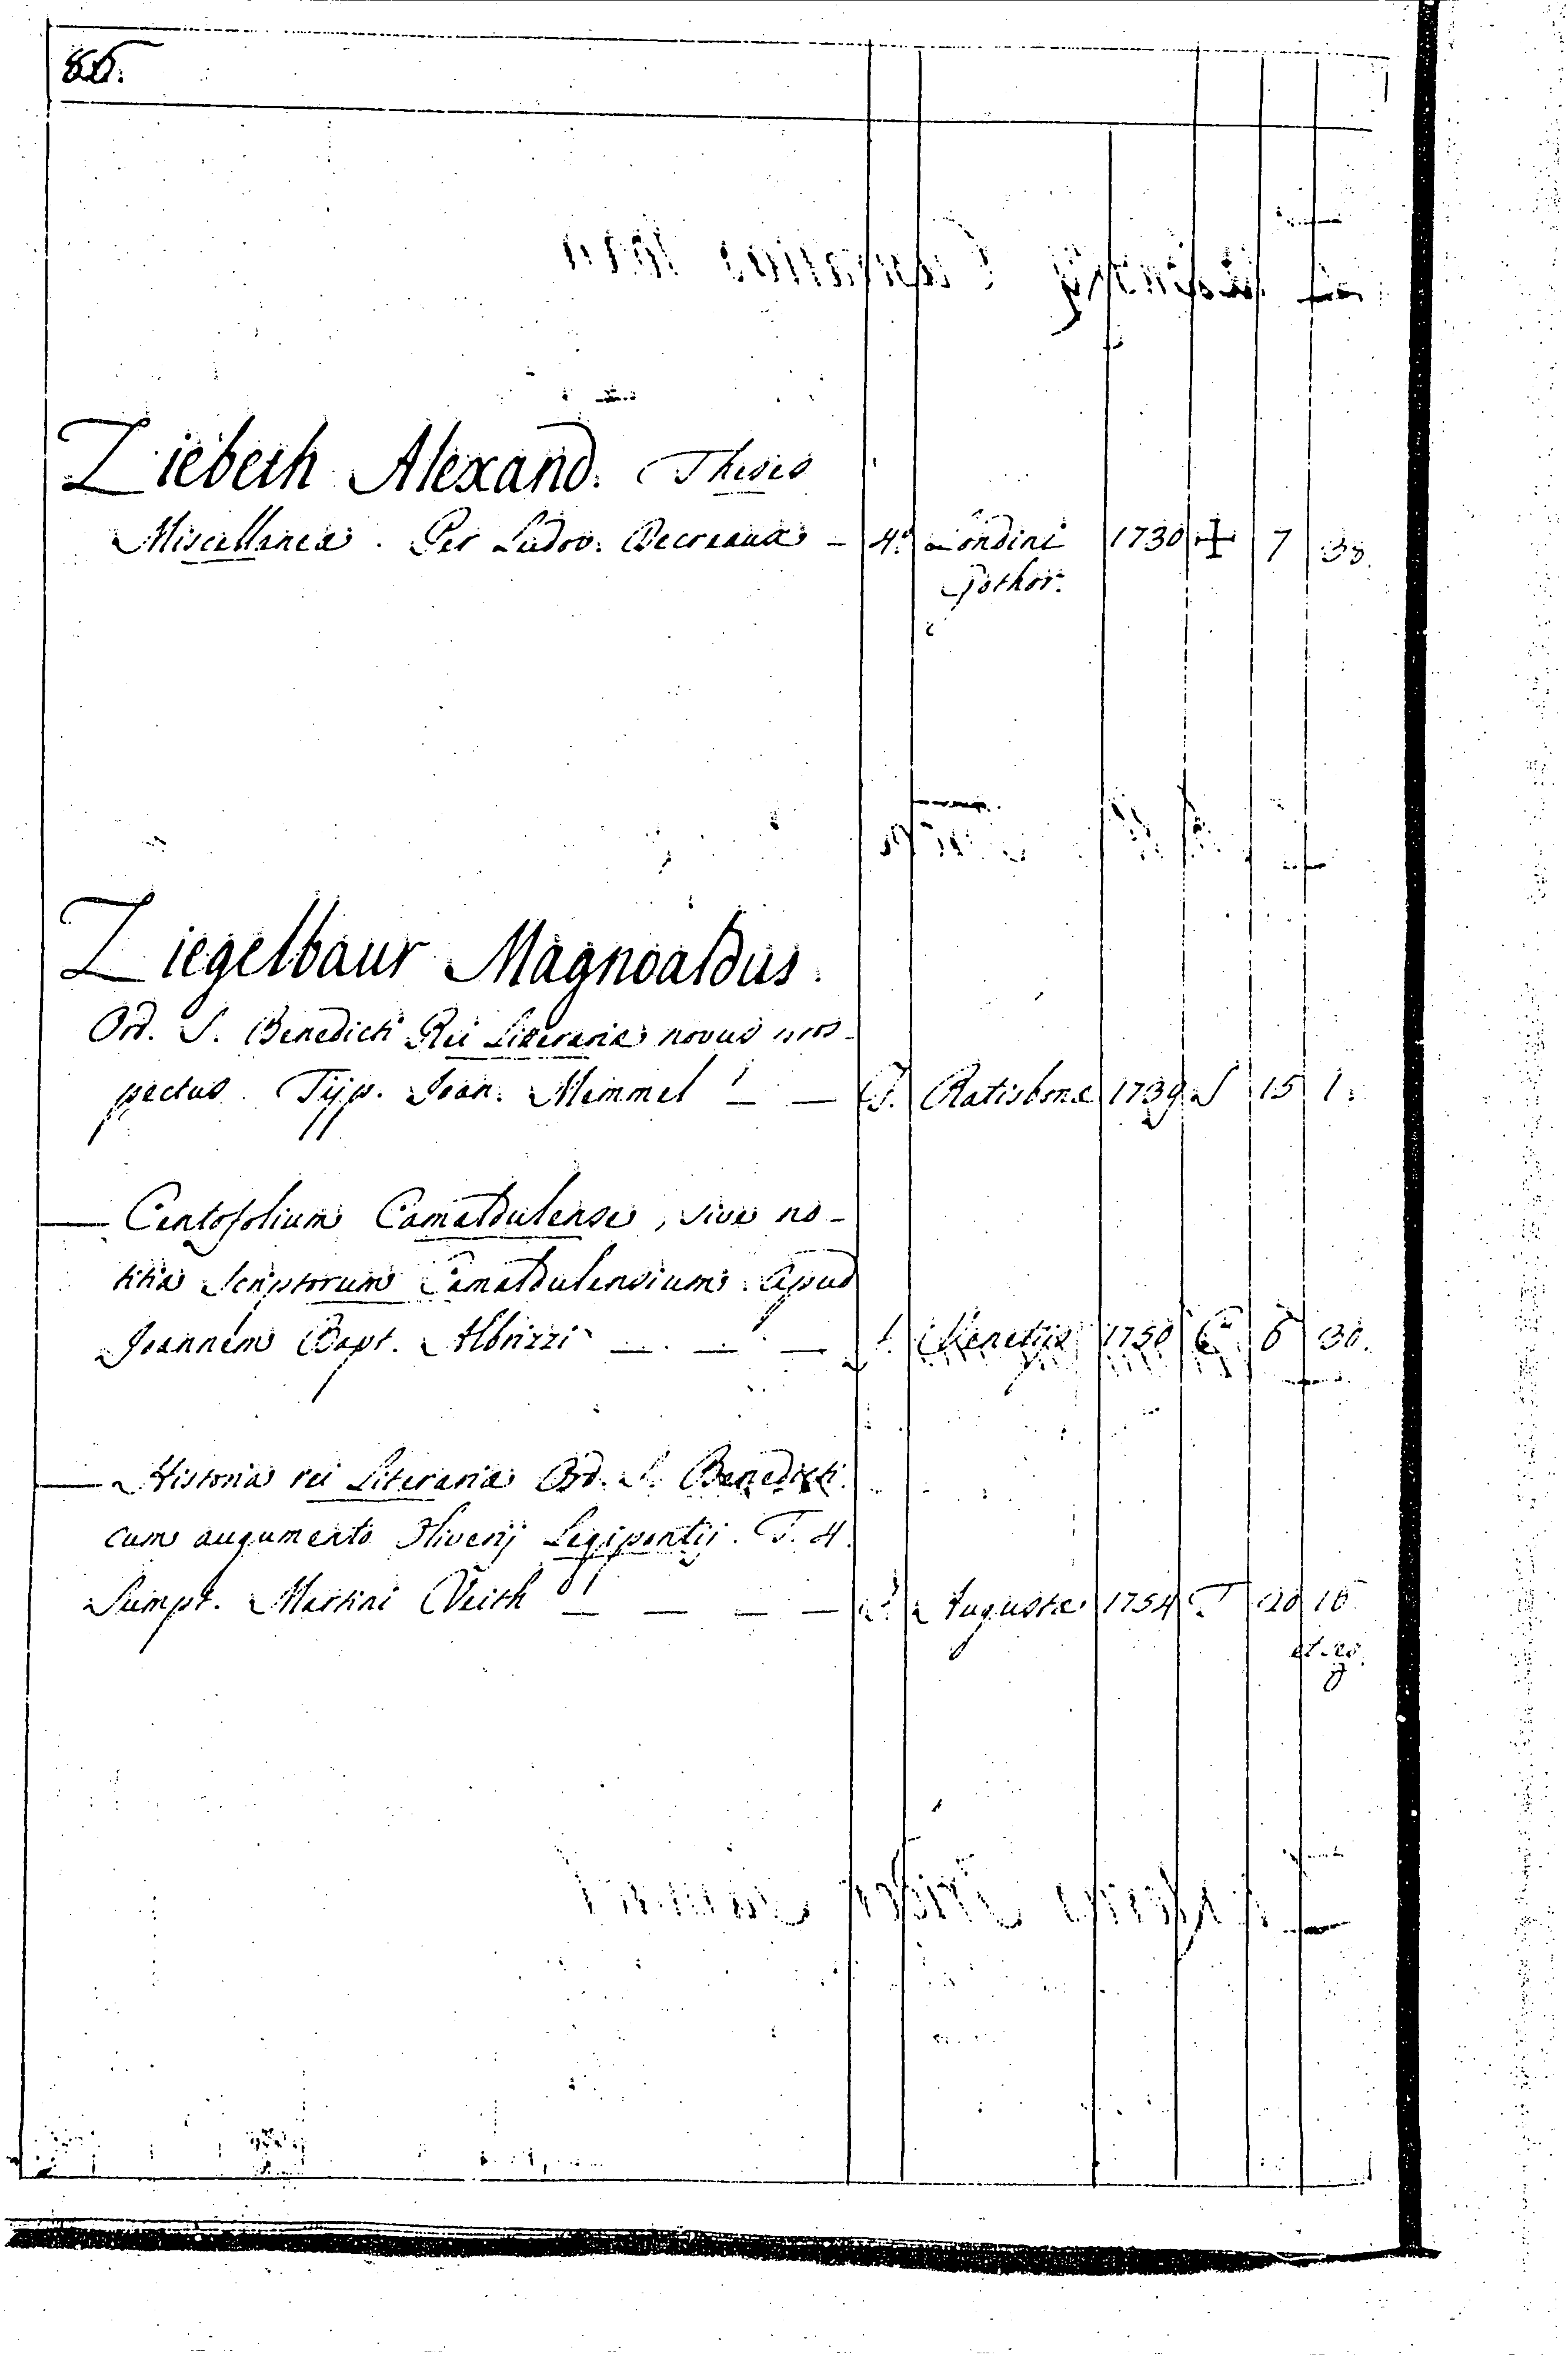 86.
Ziebeth Alexand. Theses
Miscellanea. Per Ludov. Decreaux – 4.º Londini 1730 ✠ 7 38.
Gothor.
Ziegelbaur Magnoaldus.
Ord. S. Benedicti Rei Literariæ novus pros-
pectus. Typ. Joan. Memmel — — F. Ratisbonæ 1739 S 15 1.
— Centofolium Camaldulense, sive no-
titia Scriptorum Camaldulensium. Apud
Joannem Bapt. Albrizzi — — — f. Venetijs 1750 C 6 30.
— Historia rei Literariæ Ord. S. Benedicti.
cum augumento Oliverij Legipontij. T. 4.
Sumpt. Martini Veith — — — — f. Augustæ 1754 T 20 16
et seq.